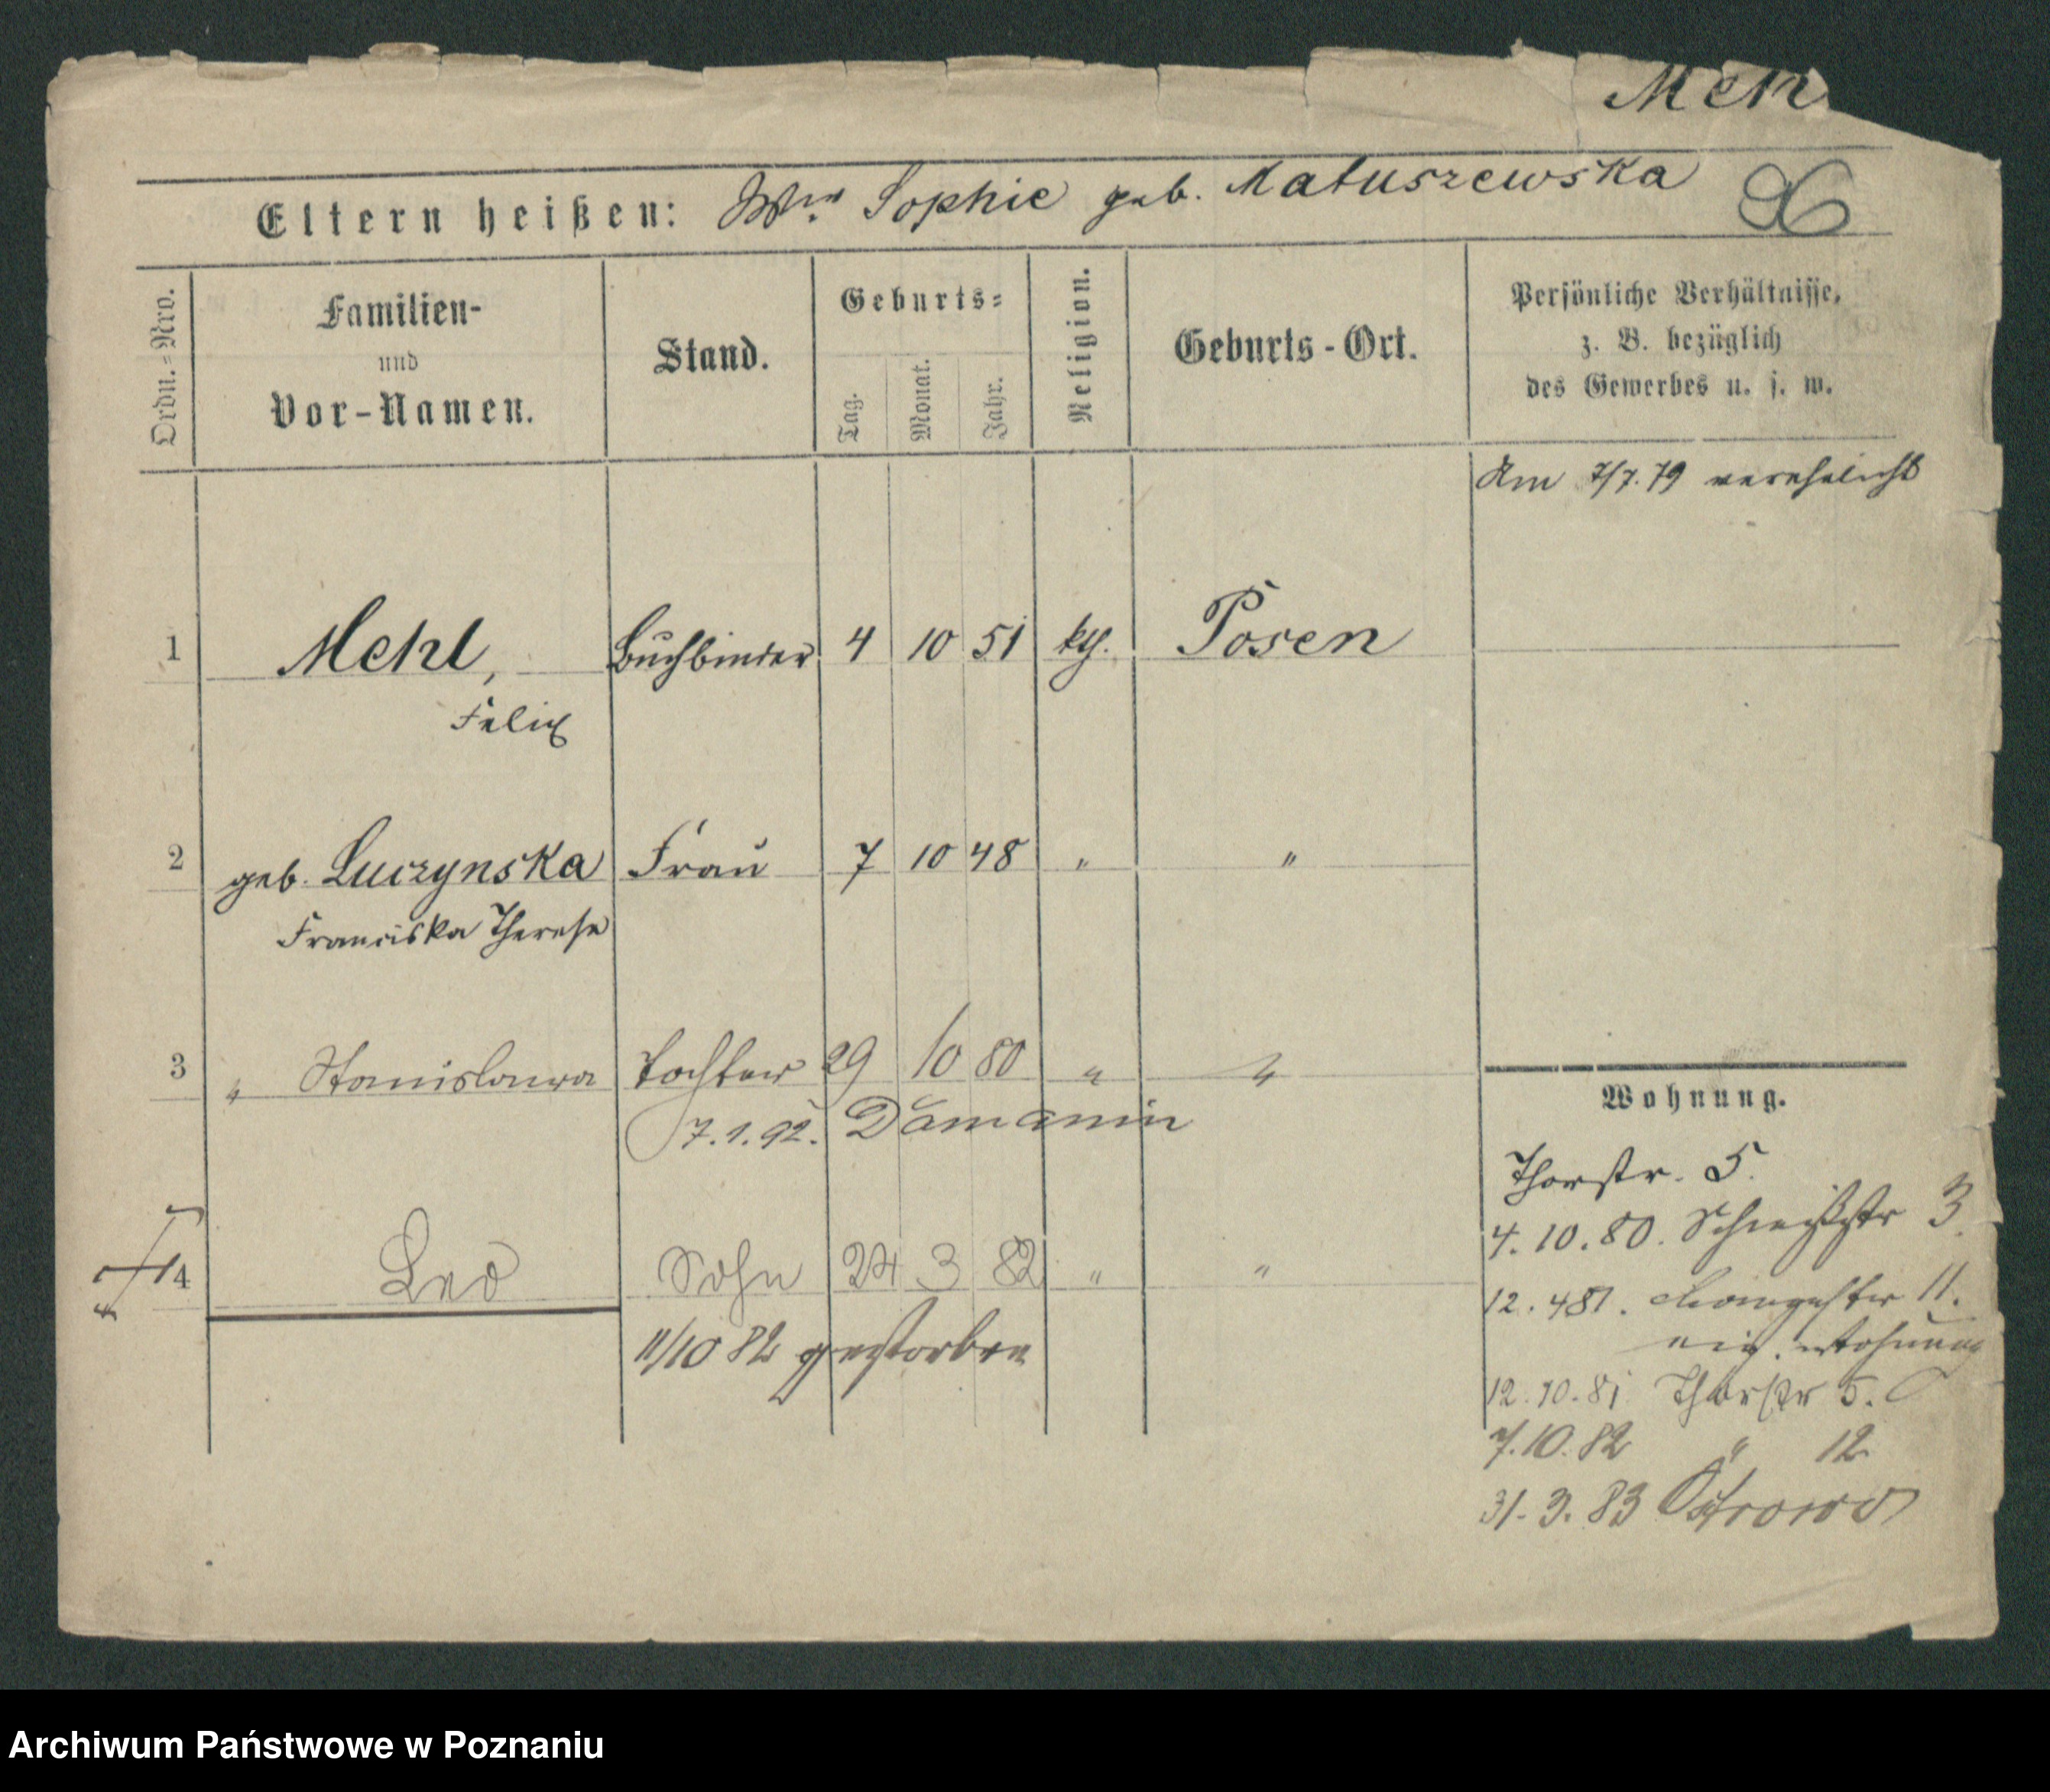 Meh
Eltern heißen: Wwe Sophie geb. Matuszewska
Ordn.=Nro.
Familien-
und
Vor-Namen.
Stand.
Geburts=
Tag.
Monat.
Jahr.
Religion.
Geburts-Ort.
Persönliche Verhältnisse,
z. B. bezüglich
des Gewerbes u. s. w.
Am 7/7.79 verehelicht
1 Mehl, Buchbinder 4 10 51 kth. Posen
Felix
2 geb. Luczynska Frau 7 10 48 " "
Franciska Therese
3 " Stanislawa Tochter 29 10 80 " "
7.1.92.
4 Leo Sohn 24 3 82 " "
11/10 82 gestorben
Wohnung.
Thorstr. 5.
4.10.80. 3
12.4 81. 11.
eig. Wohnung
12.10.81. Thorstr 5.
7.10.82 " 12
31.3.83 Ostrowo
Archiwum Państwowe w Poznaniu